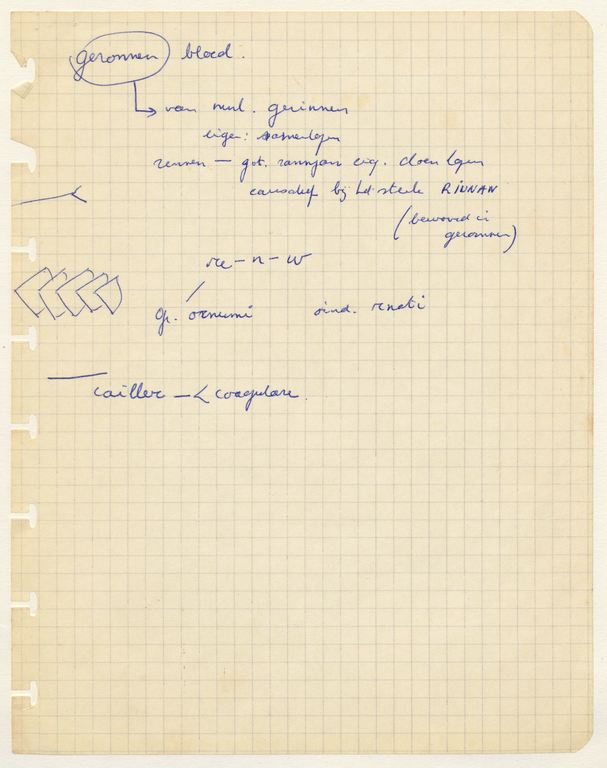 geronnen bloed.
van mnl. gerinnen
eigen: samenlopen
rennen — got. rannjan eig. doen lopen
causatief bij het sterke RINNAN
(bewaard in
geronnen)
re – n – w
gr. ornumi oind. rnoti
cailler —< coagulare.